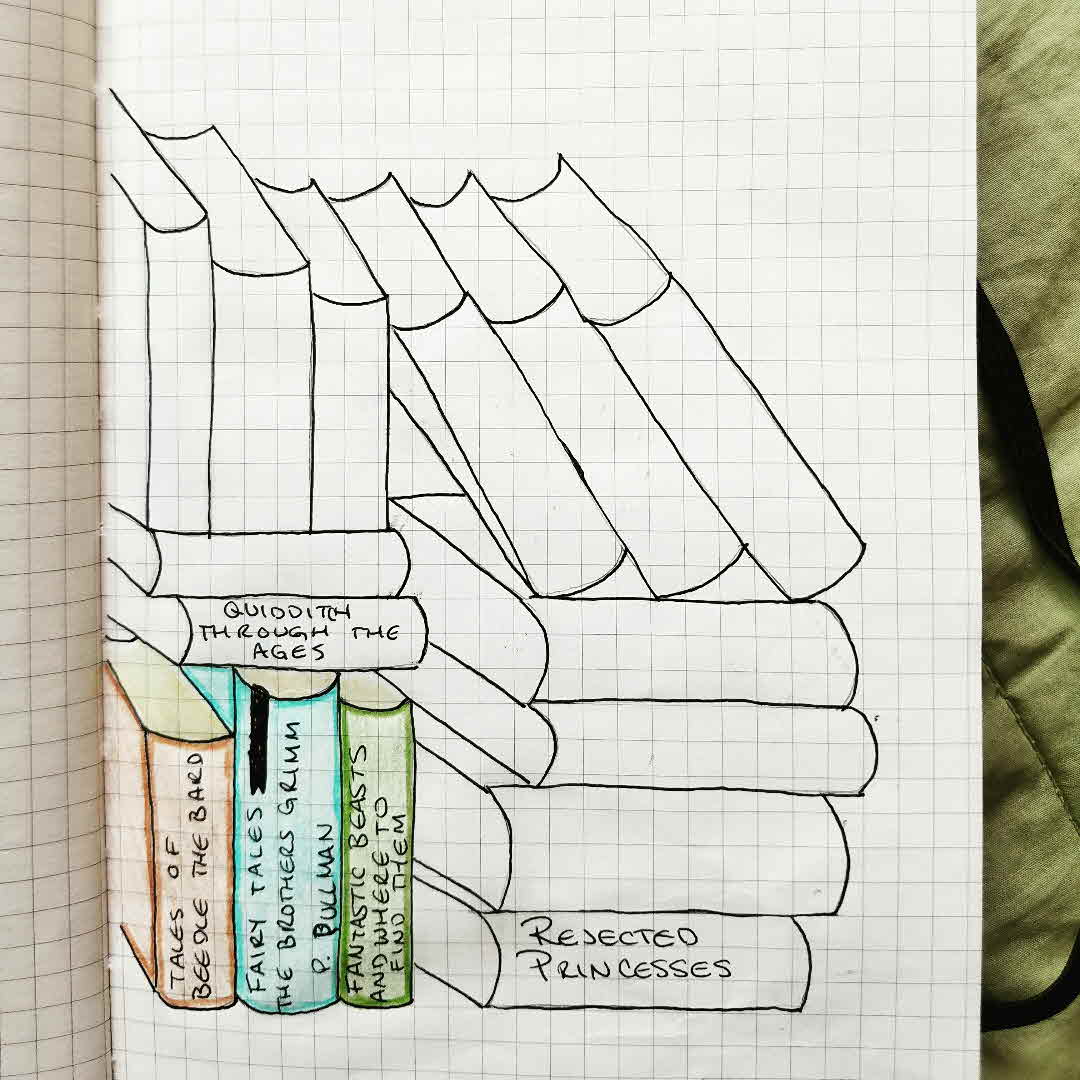 QUIDDITCH
THROUGH THE
AGES
TALES OF
BEEDLE THE BARD
FAIRY TALES
THE BROTHERS GRIMM
P. PULLMAN
FANTASTIC BEASTS
AND WHERE TO
FIND THEM
REJECTED
PRINCESSES